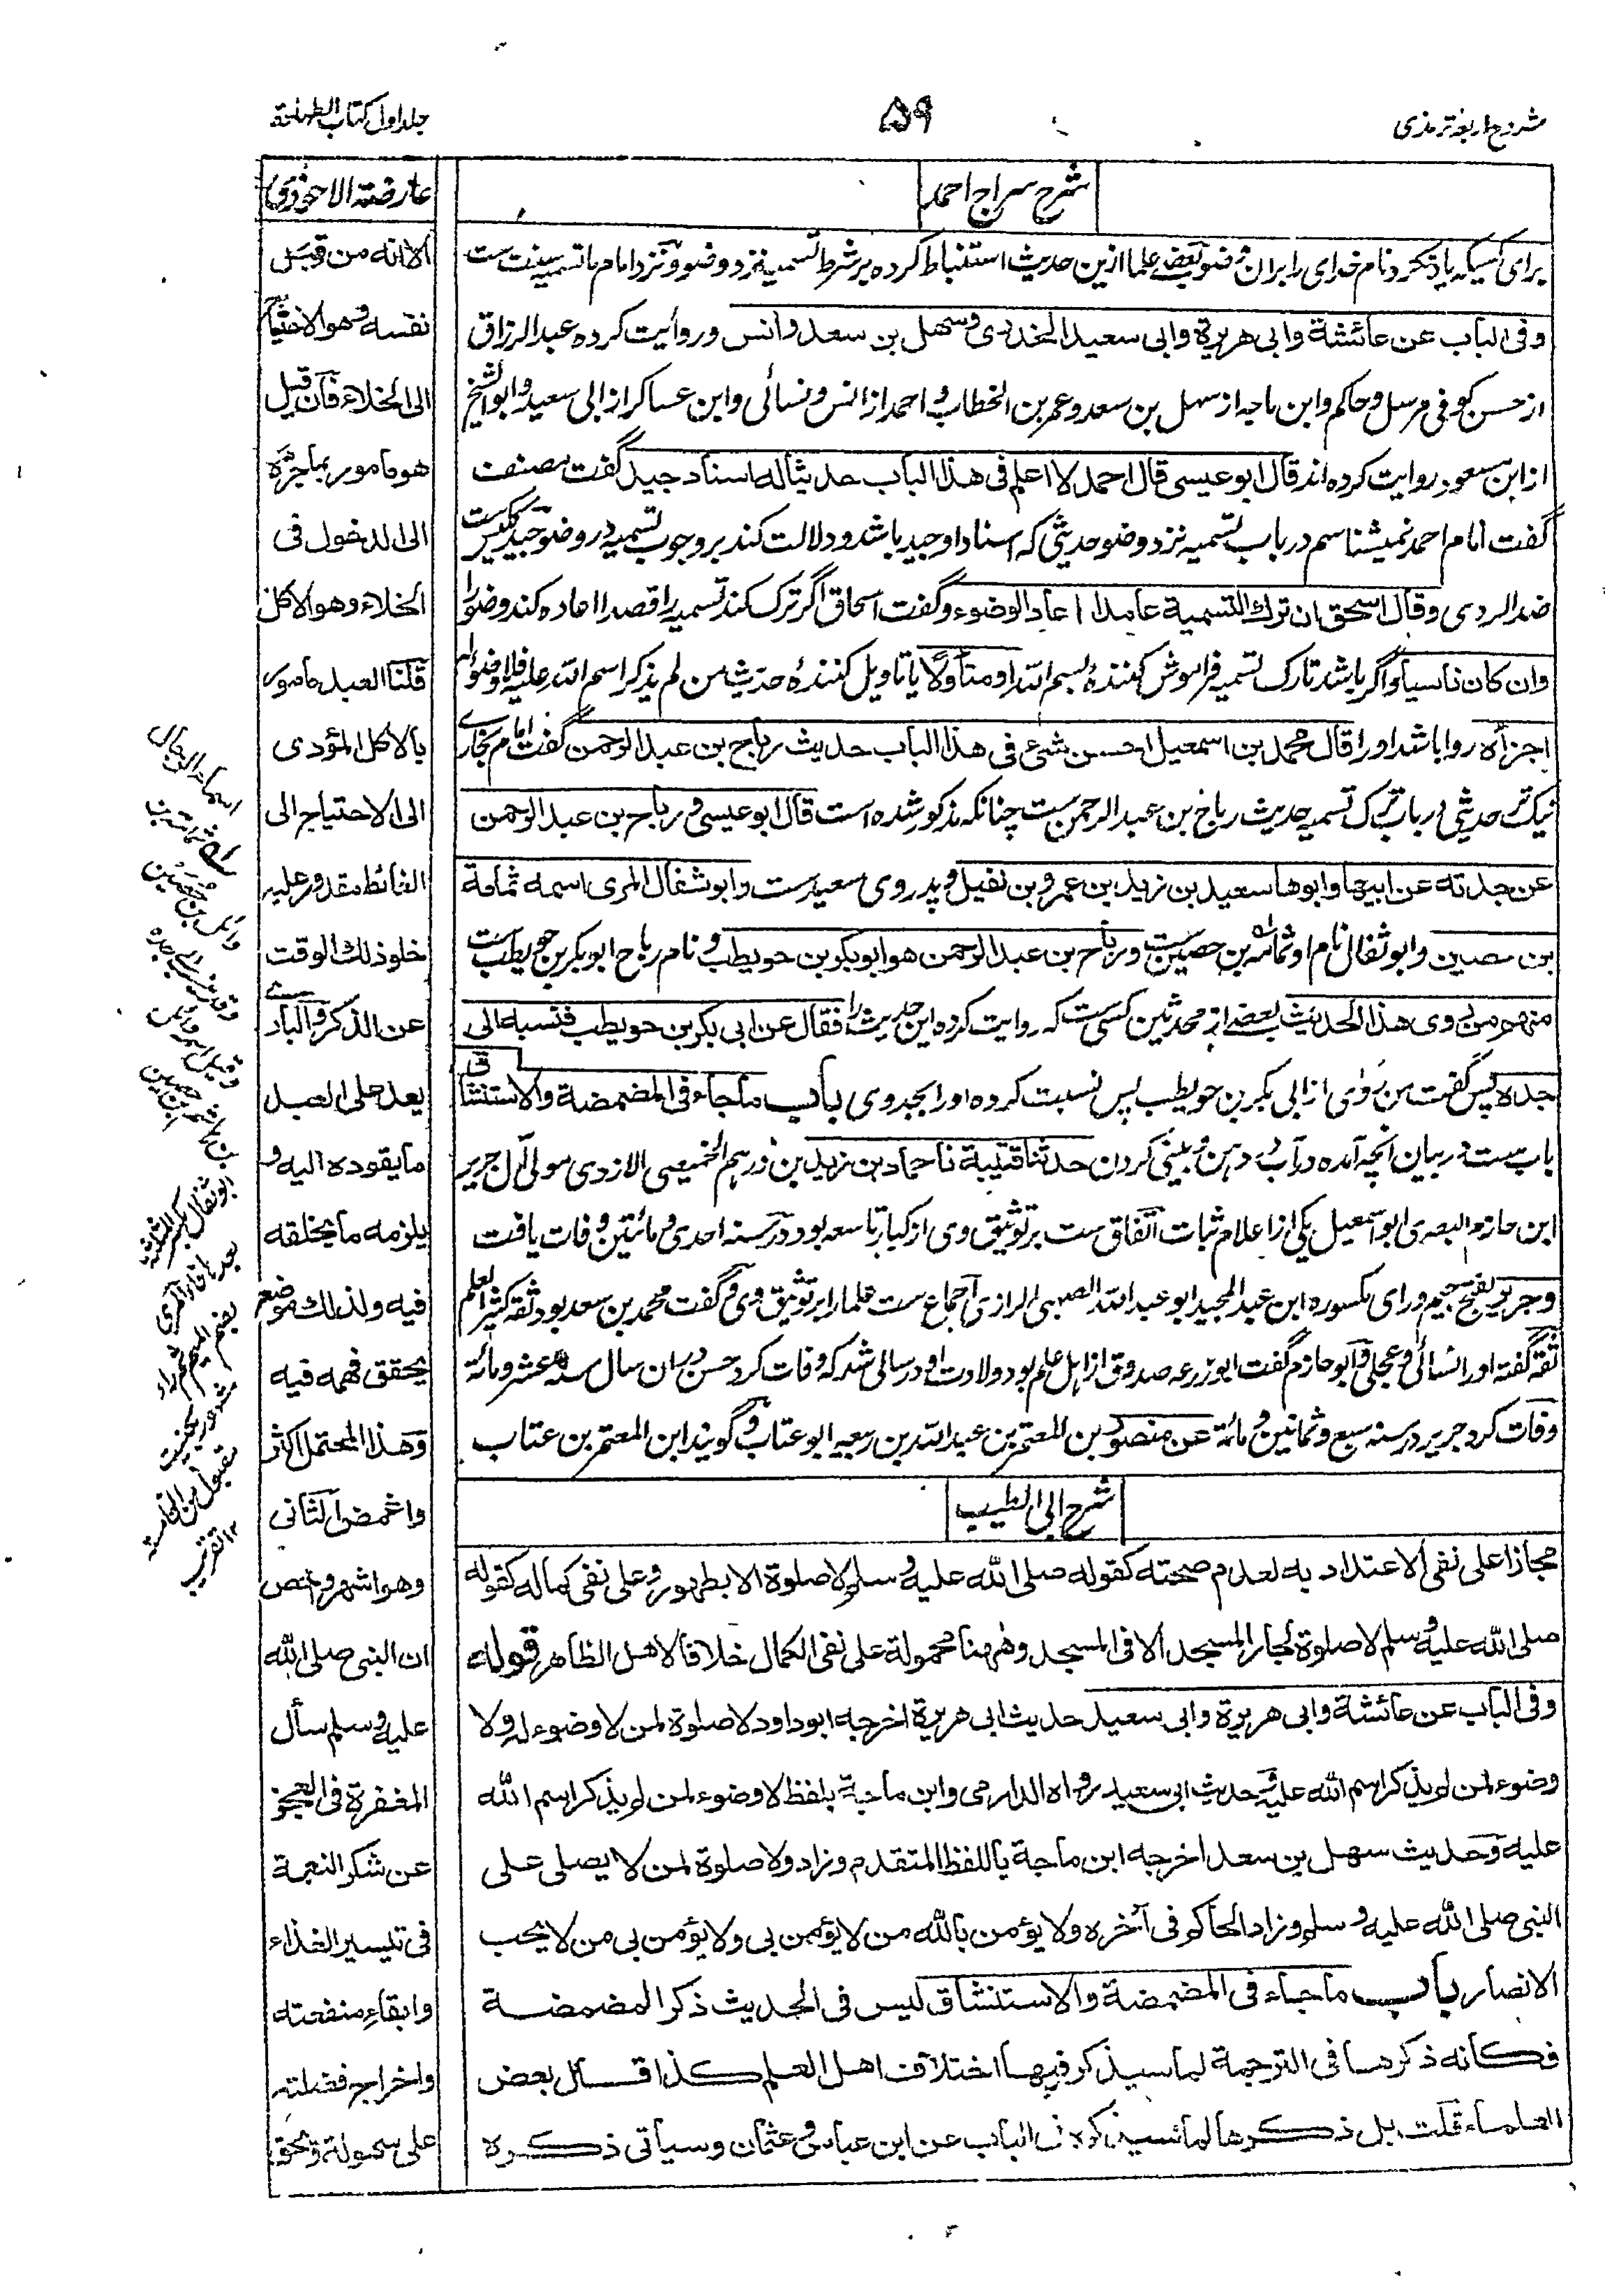 شروح اربعہ ترمذی
۵۹
جلد اول کتاب الطهارة
شرح سراج احمد
برای کسیکہ یاد نکرد نام خدای را بران وضو بعضے علما ازین حدیث استنباط کردہ بر شرط تسمیہ نزد وضو و نزد امام ما تسمیہ سنت ست
وفی الباب عن عائشة وابی هریرة وابی سعید الخدری وسهل بن سعد وانس وروایت کردہ عبد الرزاق
از حسن کوفی مرسل و حاکم وابن ماجہ از سہل بن سعد وعمر بن الخطاب و احمد از انس و نسائی وابن عساکر از ابی سعید و ابو الشیخ
از ابن مسعود روایت کردہ اند قال ابو عیسی قال احمد لا اعلم فی هذا الباب حدیثا له اسناد جید گفت مصنف
گفت امام احمد نمیشناسم در باب تسمیہ نزد وضو حدیثی کہ اسناد او جید باشد و دلالت کند بر وجوب تسمیہ در وضو جید ست
ضد الردی وقال اسحق ان ترك التسمیة عامدا اعاد الوضوء و گفت اسحاق اگر ترک کند تسمیہ را قصدا اعادہ کند وضو را
وان کان ناسیا واگر باشد تارک تسمیہ فراموش کنندۂ بسم اللہ را ومتأولا یا تاویل کنندۂ حدیث من لم یذکر اسم اللہ علیہ فلا وضوء لہ
اجزأہ روا باشد اورا قال محمد بن اسمعیل احسن شیء فی هذا الباب حدیث رباح بن عبد الرحمن گفت امام بخاری
نیک تر حدیثی در باب ترک تسمیہ حدیث رباح بن عبد الرحمن ست چنانکہ مذکور شدہ است قال ابو عیسی و رباح بن عبد الرحمن
عن جدته عن ابیها وابوها سعید بن زید بن عمرو بن نفیل و پدر وی سعید ست وابو ثفال المری اسمه ثمامة
بن حصین وابو ثفال نام او ثمامہ بن حصین ست ورباح بن عبد الرحمن هو ابوبکر بن حویطب و نام رباح ابوبکر بن حویطب ست
منهم من روی هذا الحدیث بعضے از محدثین کسی ست کہ روایت کردہ این حدیث را فقال عن ابی بکر بن حویطب فنسبه الی
جدہ پس گفت من روی از ابی بکر بن حویطب پس نسبت کردہ اورا بجد وی باب ماجاء فی المضمضة والاستنشاق
باب ست در بیان آنچہ آمدہ در آب در دہن و بینی کردن حدثنا قتیبة نا حماد بن زید بن درہم الجهضمی الازدی مولی آل جریر
ابن حازم البصری ابو اسمعیل یکی از اعلام ثبات اتفاق ست بر توثیق وی از کبار تاسعہ بود در سنہ احدی و مائتین وفات یافت
وجریر بفتح جیم و رای مکسورہ ابن عبد الحمید ابو عبد اللہ الضبی الرازی اجماع ست علما را بر توثیق وی و گفت محمد بن سعد بود ثقہ کثیر العلم
ثقہ گفتہ اورا نسائی وعجلی وابو حازم گفت ابوزرعہ صدوق از اہل علم بود و ولادت او در سالی شد کہ وفات کرد حسن دران سال سنہ عشر و مائة
وفات کرد جریر در سنہ سبع و ثمانین و مائة عن منصور بن المعتمر بن عبد اللہ بن ربیعہ ابو عتاب و گویند ابن المعتمر بن عتاب
شرح ابی الطیب
مجازا علی نفی الاعتداد به لعدم صحته کقوله صلی الله علیه وسلم لا صلوة الا بطهور وعلی نفی کماله کقوله
صلی الله علیه وسلم لا صلوة لجار المسجد الا فی المسجد وههنا محمولة علی نفی الکمال خلافا لاهل الظاهر قوله
وفی الباب عن عائشة وابی هریرة وابی سعید حدیث ابی هریرة اخرجه ابو داود لا صلوة لمن لا وضوء له ولا
وضوء لمن لم یذکر اسم الله علیه وحدیث ابی سعید رواه الدارمی وابن ماجة بلفظ لا وضوء لمن لم یذکر اسم الله
علیه وحدیث سهل بن سعد اخرجه ابن ماجة باللفظ المتقدم وزاد ولا صلوة لمن لا یصلی علی
النبی صلی الله علیه وسلم وزاد الحاکم فی آخره ولا یؤمن بالله من لا یؤمن بی ولا یؤمن بی من لا یحب
الانصار باب ماجاء فی المضمضة والاستنشاق لیس فی الحدیث ذکر المضمضة
فکانه ذکرها فی الترجمة لما سیذکر فیها اختلاف اهل العلم کذا قال بعض
العلماء قلت بل ذکرها لما سیذکره فی الباب عن ابن عباس وعثمان وسیاتی ذکره
عارضة الاحوذی
الا انه من قبل
نفسه وهو الاحتیاج
الی الخلاء فان قیل
هو مامور بما جره
الی الدخول فی
الخلاء وهو الاکل
قلنا العبد مامور
بالاکل المؤدی
الی الاحتیاج الی
الغائط مقدور علیه
خلو ذلك الوقت
عن الذکر والباری
یعد علی العبد
ما یقوده الیه و
یلزمه ما یخلقه
فیه ولذلك موضع
یحقق فهمه فیه
وهذا المحتمل اکثر
واغمض الثانی
وهو اشهر واخص
ان النبی صلی الله
علیه وسلم سأل
المغفرة فی العجز
عن شکر النعمة
فی تیسیر الغذاء
وابقاء منفعته
واخراج فضلته
علی سهولة وبحق
اسماء الرجال
ثمامة بن
وائل بن حصین
وقد ینسب الی جده
وقیل اسمه وائل
بن هاشم بن حصین
ابو ثفال بکسر المثلثة
بعدها فاء المری
بضم المیم ثم راء
مشهور بکنیته
مقبول من الخامسة
۱۲ تقریب